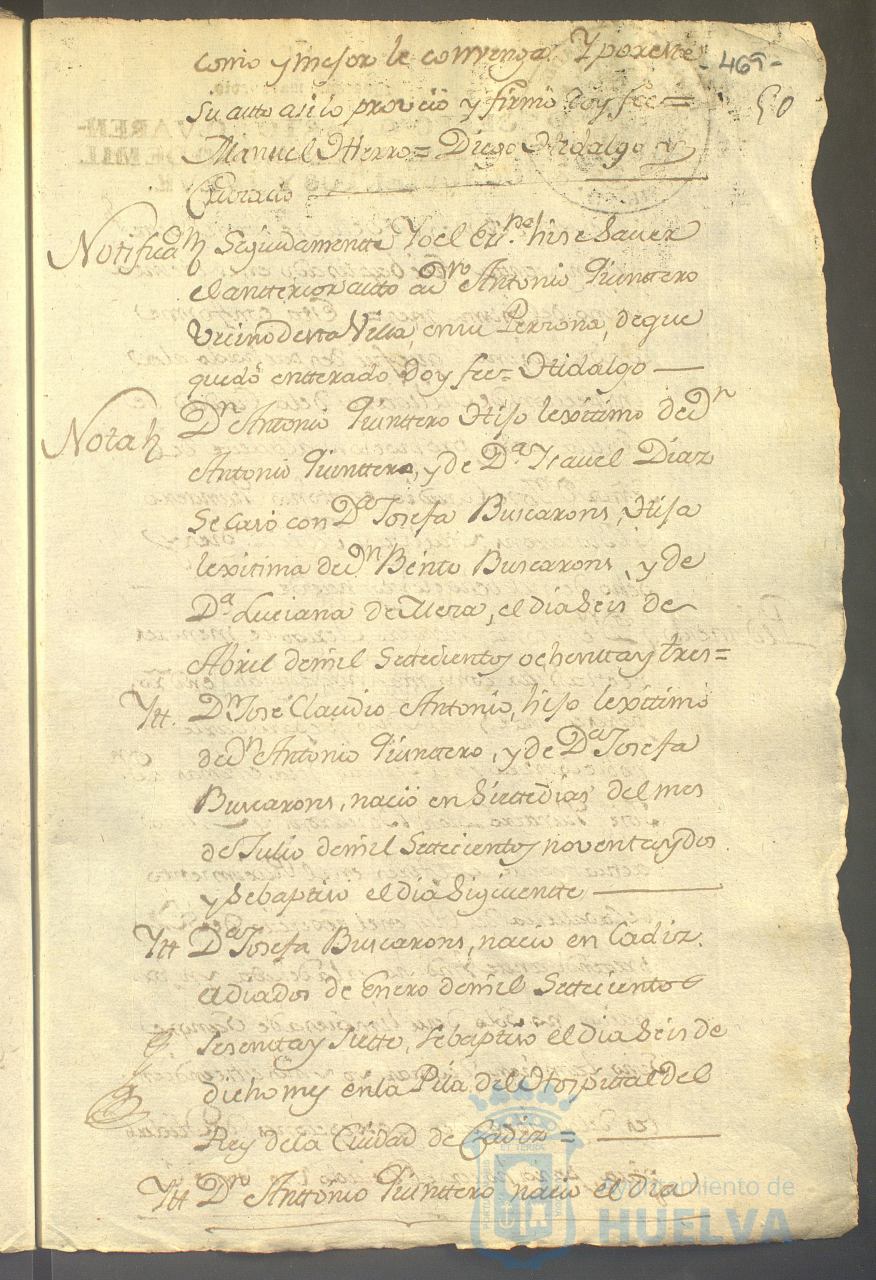 como y mejor le convenga Y por este
- 469 -
50
Su auto asi lo proveió y firmó doy fee=
Manuel Hierro= Diego Hidalgo y
Notificaon Seguidamente Yo el Esno hise saver
el antterior auto a Dn Antonio Quinttero
Vecino desta Villa, en su Perzona, de que
quedó entterado doy fee= Hidalgo —
Notas Dn Antonio Quinttero Hijo lexittimo de Dn
Antonio Quinttero, y de Da Ysavel Diaz
Se casó con Da Josefa Buscarons, Hija
lexitima de Dn Benito Buscarons, y de
Da Luciana de Mera, el dia seis de
Abril de mil Settecientos ochentta y tres=
Ytt. Dn José Claudio Antonio, hijo lexittimo
de Dn Antonio Quinttero, y de Da Josefa
Buscarons, nació en siette dias del mes
de Julio de mil Settecientos noventta y dos
y se baptiso el dia siguientte —
Ytt Da Josefa Buscarons, nacio en Cadiz
el dia dos de Enero de mil Settecientos
Sesentta y Siette, se baptiso el dia seis de
dicho mes en la Pila del Hospital del
Rey de la Ciudad de Cadiz =
Ytt Dn Anttonio Quinttero nacio el dia
Ayuntamiento de
HUELVA